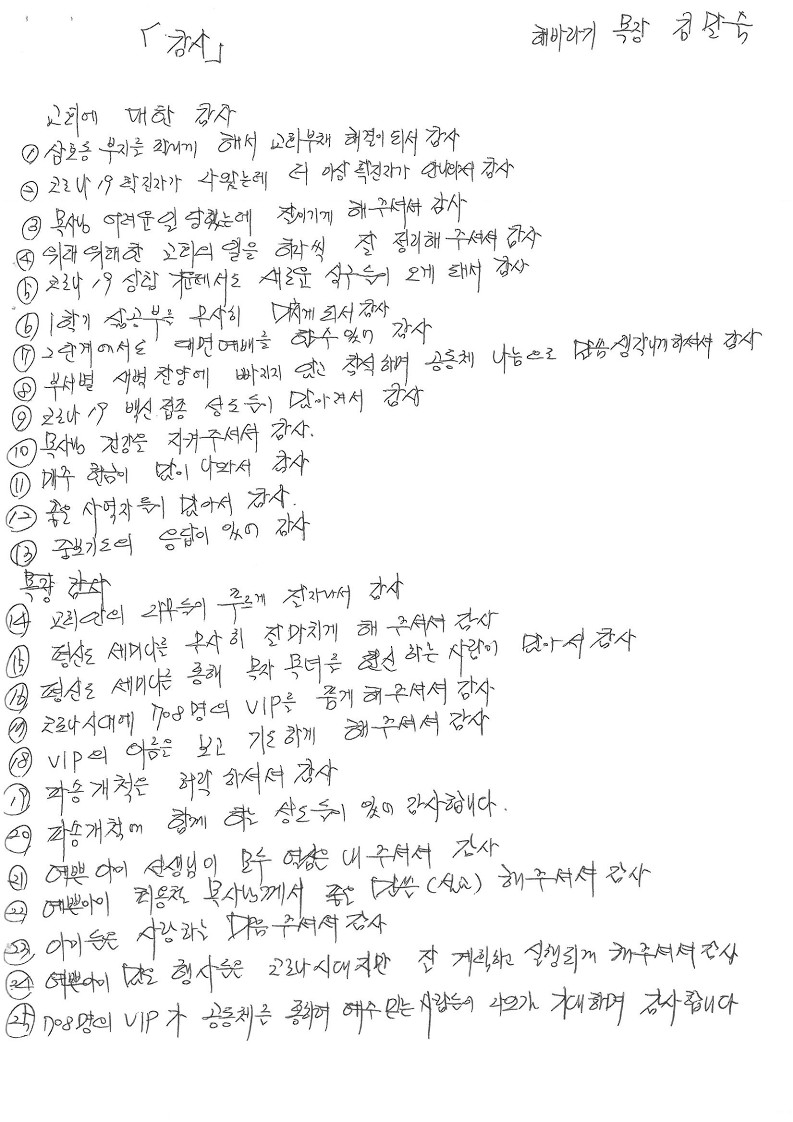 「감사」
해바라기 목장
교회에 대한 감사
① 삼호동 부지를 해서 교회부채 해결이 되서 감사
② 코로나 19 확진자가 나왔는데 더 이상 확진자가 안나와서 감사
③ 목사님 어려운일 당했는데 잘이기게 해 주셔서 감사
④ 위태위태한 교회의 일을 하나씩 잘 정리해 주셔서 감사
⑤ 코로나 19 상황 에서도 새로운 식구들이 오게 되서 감사
⑥ 1학기 삶공부를 무사히 마치게 되서 감사
⑦ 2단계에서도 대면예배를 할수있어 감사
⑧ 부서별 새벽 찬양에 빠지지 않고 참석하며 공동체 나눔으로 말씀 생각나게 하셔서 감사
⑨ 코로나 19 백신접종 성도들이 많아져서 감사
⑩ 목사님 건강을 지켜주셔서 감사.
⑪ 매주 헌금이 많이 나와서 감사
⑫ 좋은 사역자들이 많아서 감사.
⑬ 중보기도의 응답이 있어 감사
목장 감사
⑭ 교회안의 나무들이 푸르게 잘자라서 감사
⑮ 평신도 세미나를 무사히 잘마치게 해 주셔서 감사
⑯ 평신도 세미나를 통해 목자 목녀를 헌신 하는 사람이 많아서 감사
⑰ 코로나시대에 708명의 VIP를 품게 해주셔서 감사
⑱ VIP의 이름을 보고 기도하게 해주셔서 감사
⑲ 파송개척을 허락 하셔서 감사
⑳ 파송개척에 함께 하는 성도들이 있어 감사합니다.
㉑ 예쁜 아이 선생님이 모두 열심을 내 주셔서 감사
㉒ 예쁜아이 목사님께서 좋은 말씀 (설교) 해주셔서 감사
㉓ 아이들을 사랑하는 마음 주셔서 감사
㉔ 예쁜아이 많은 행사들을 코로나시대지만 잘 계획하고 실행되게 해주셔서 감사
㉕ 708명의 VIP가 공동체를 통하여 예수믿는 사람들이 기대하며 감사합니다